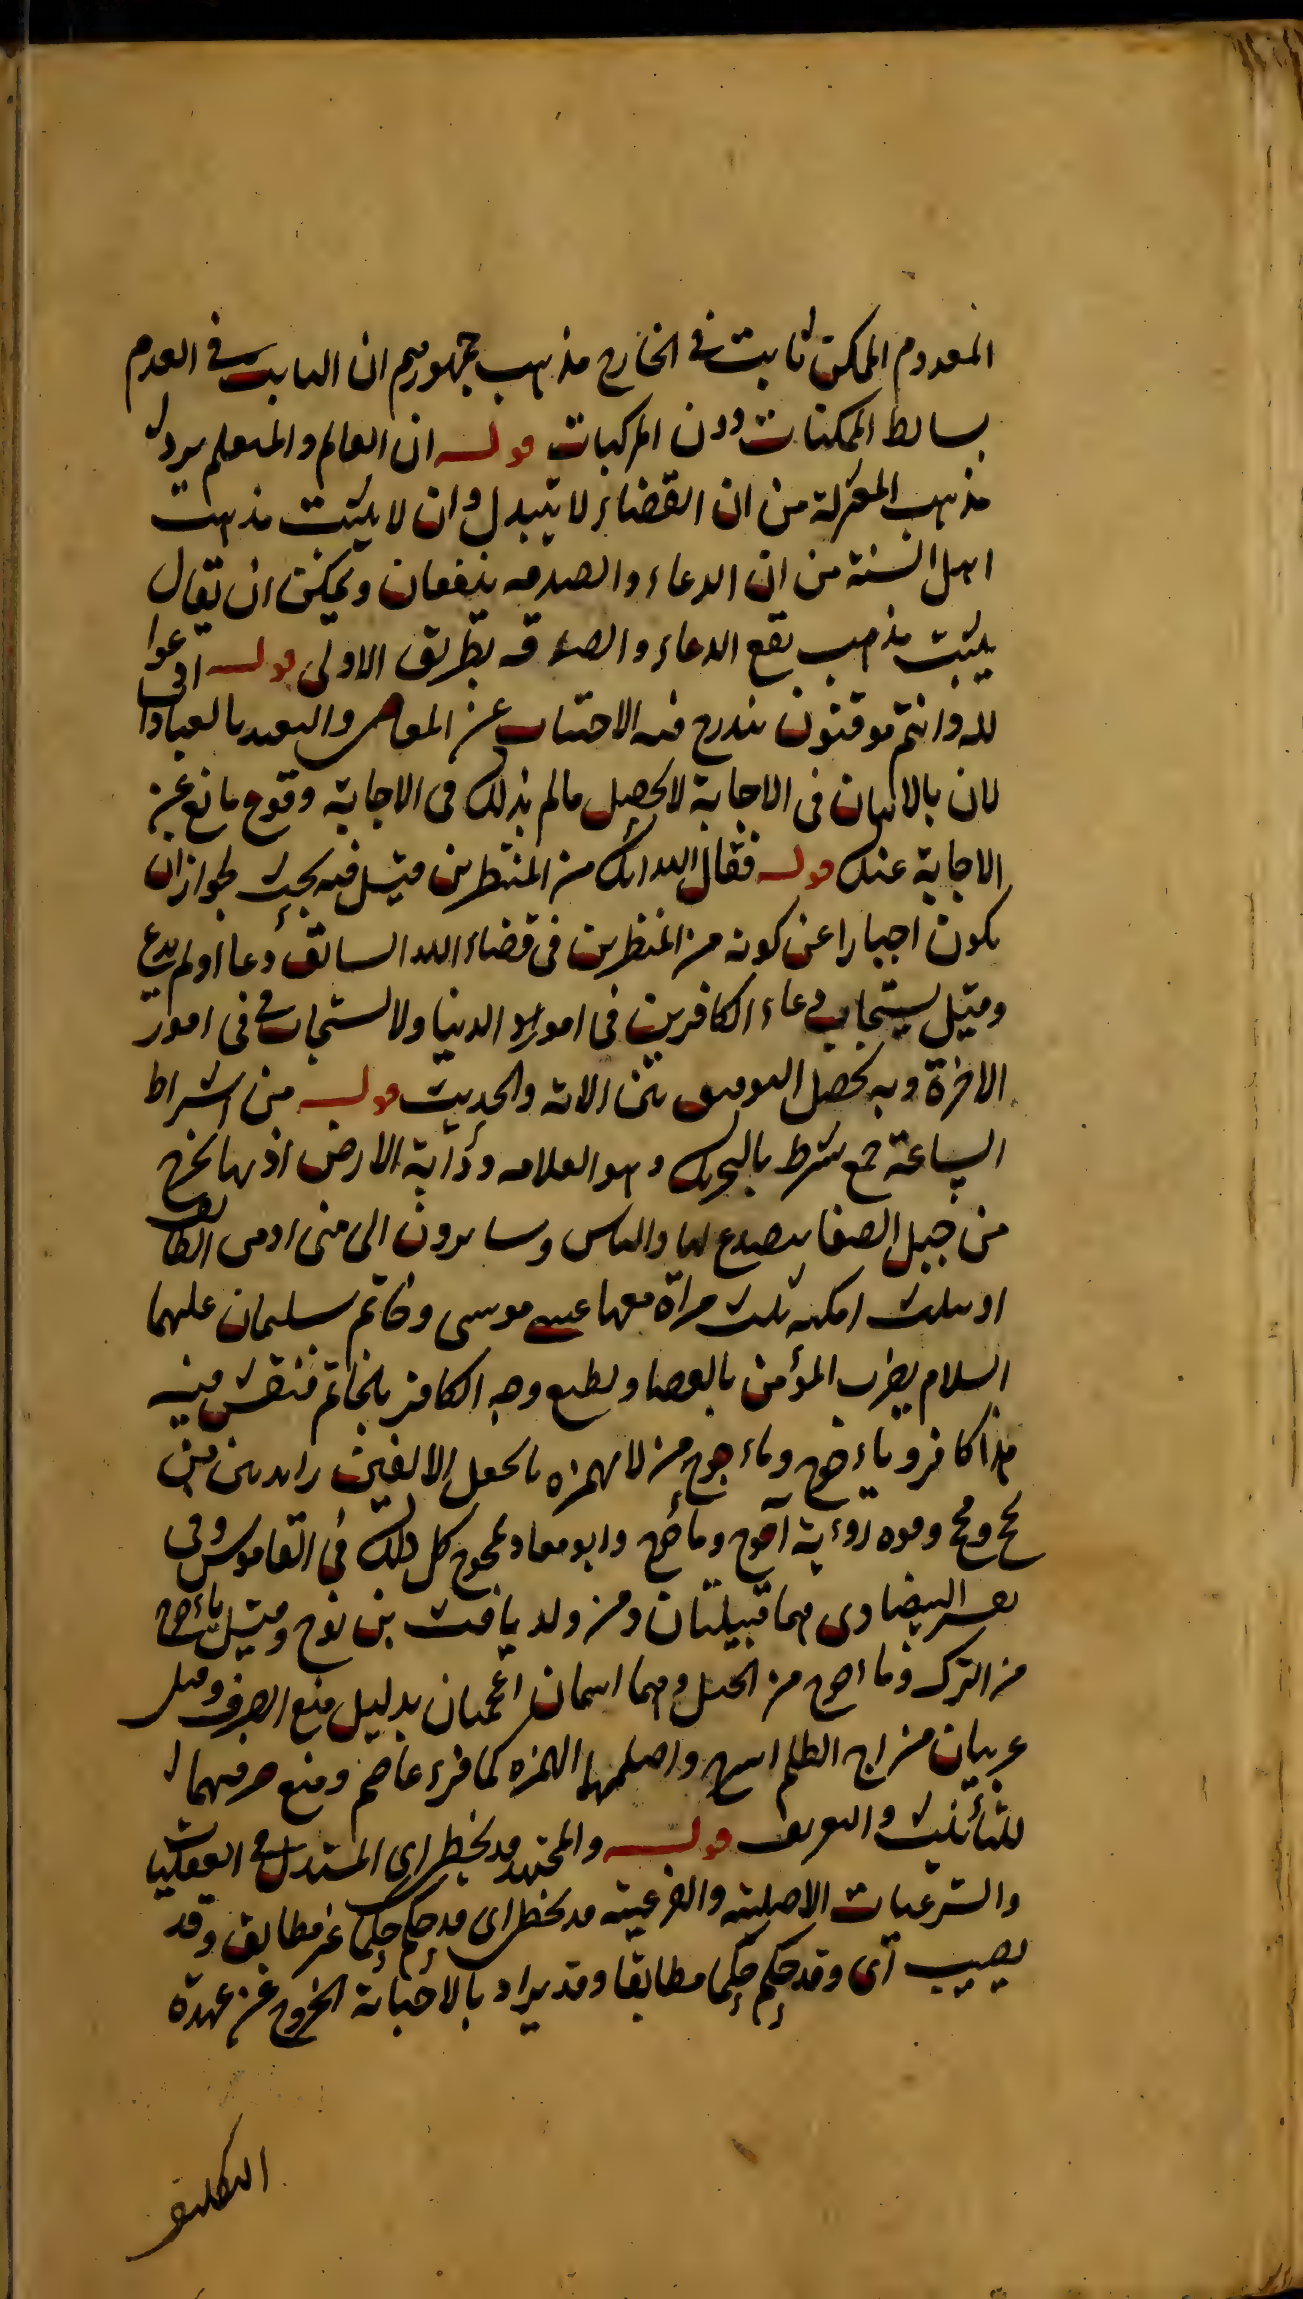 المعدوم الممكن ثابت في الخارج مذهب جمهورهم ان الثابت في العدم
بسائط الممكنات دون المركبات قوله ان العالم والمتعلم يرد
مذهب المعتزلة من ان القضاء لا يتبدل وان لا يثبت مذهب
اهل السنة من ان الدعاء والصدقه ينفعان ويمكن ان يقال
يثبت مذهب نفع الدعاء والصدقه بطريق الاولى قوله ادعوا
لله وانتم موقنون يندرج فيه الاجتناب عن المعاصى والتعبد بالعبادا
لان بالاتيان في الاجابة لا يحصل مالم بذلك في الاجابة وقوع مانع عن
الاجابة عنك قوله فقال الله انك من المنتظرين قيل فيه بحث لجواز ان
يكون اخبارا عن كونه من المنظرين في قضاء الله السابق دعا اولم يدع
وقيل يستجاب دعاء الكافرين في امور الدنيا ولا يستجاب في امور
الاخرة وبه يحصل التوفيق بين الاية والحديث قوله من اشراط
الساعة جمع شرط بالتحريك وهو العلامه ودأبة الارض اذ بها تخرج
من جبل الصفا يتصدع لها والناس وسايرون الى منى او من الطائف
او بثلث امكنه ثلث مراة معها عصى موسى وخاتم سليمان عليهما
السلام يضرب المؤمن بالعصا ويطبع وجه الكافر بالخاتم فينقش فيه
هذا كافر وياءجوج وماءجوج من لا يهمزه يجعل الالفين زايدين من
يجج ومجج وقرء رؤبة آجوج ومأجوج وابو معاذ يمجوج كل ذلك في القاموس وفي
تفسير البيضاوى هما قبيلتان من ولد يافث بن نوح وقيل ياءجوج
من الترك وماءجوج من الجبل وهما اسمان اعجميان بدليل منع الصرف وقيل
عربيان من اج الظليم اسرع واصلهما الهمزه كما قرء عاصم ومنع صرفهما
للتأنيث والتعريف قوله والمجتهد قد يخطئ اى المستدل في العقليات
والشرعيات الاصلية والفرعية قد يخطئ اى قد حكم حكما غير مطابق وقد
يصيب اى وقد حكم حكما مطابقا وقد يراد بالاصابة الخروج عن عهدة
التكليف